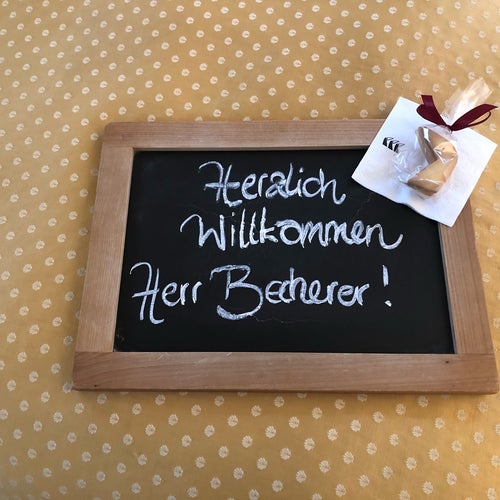 Herzlich
Willkommen
Herr Becherer!